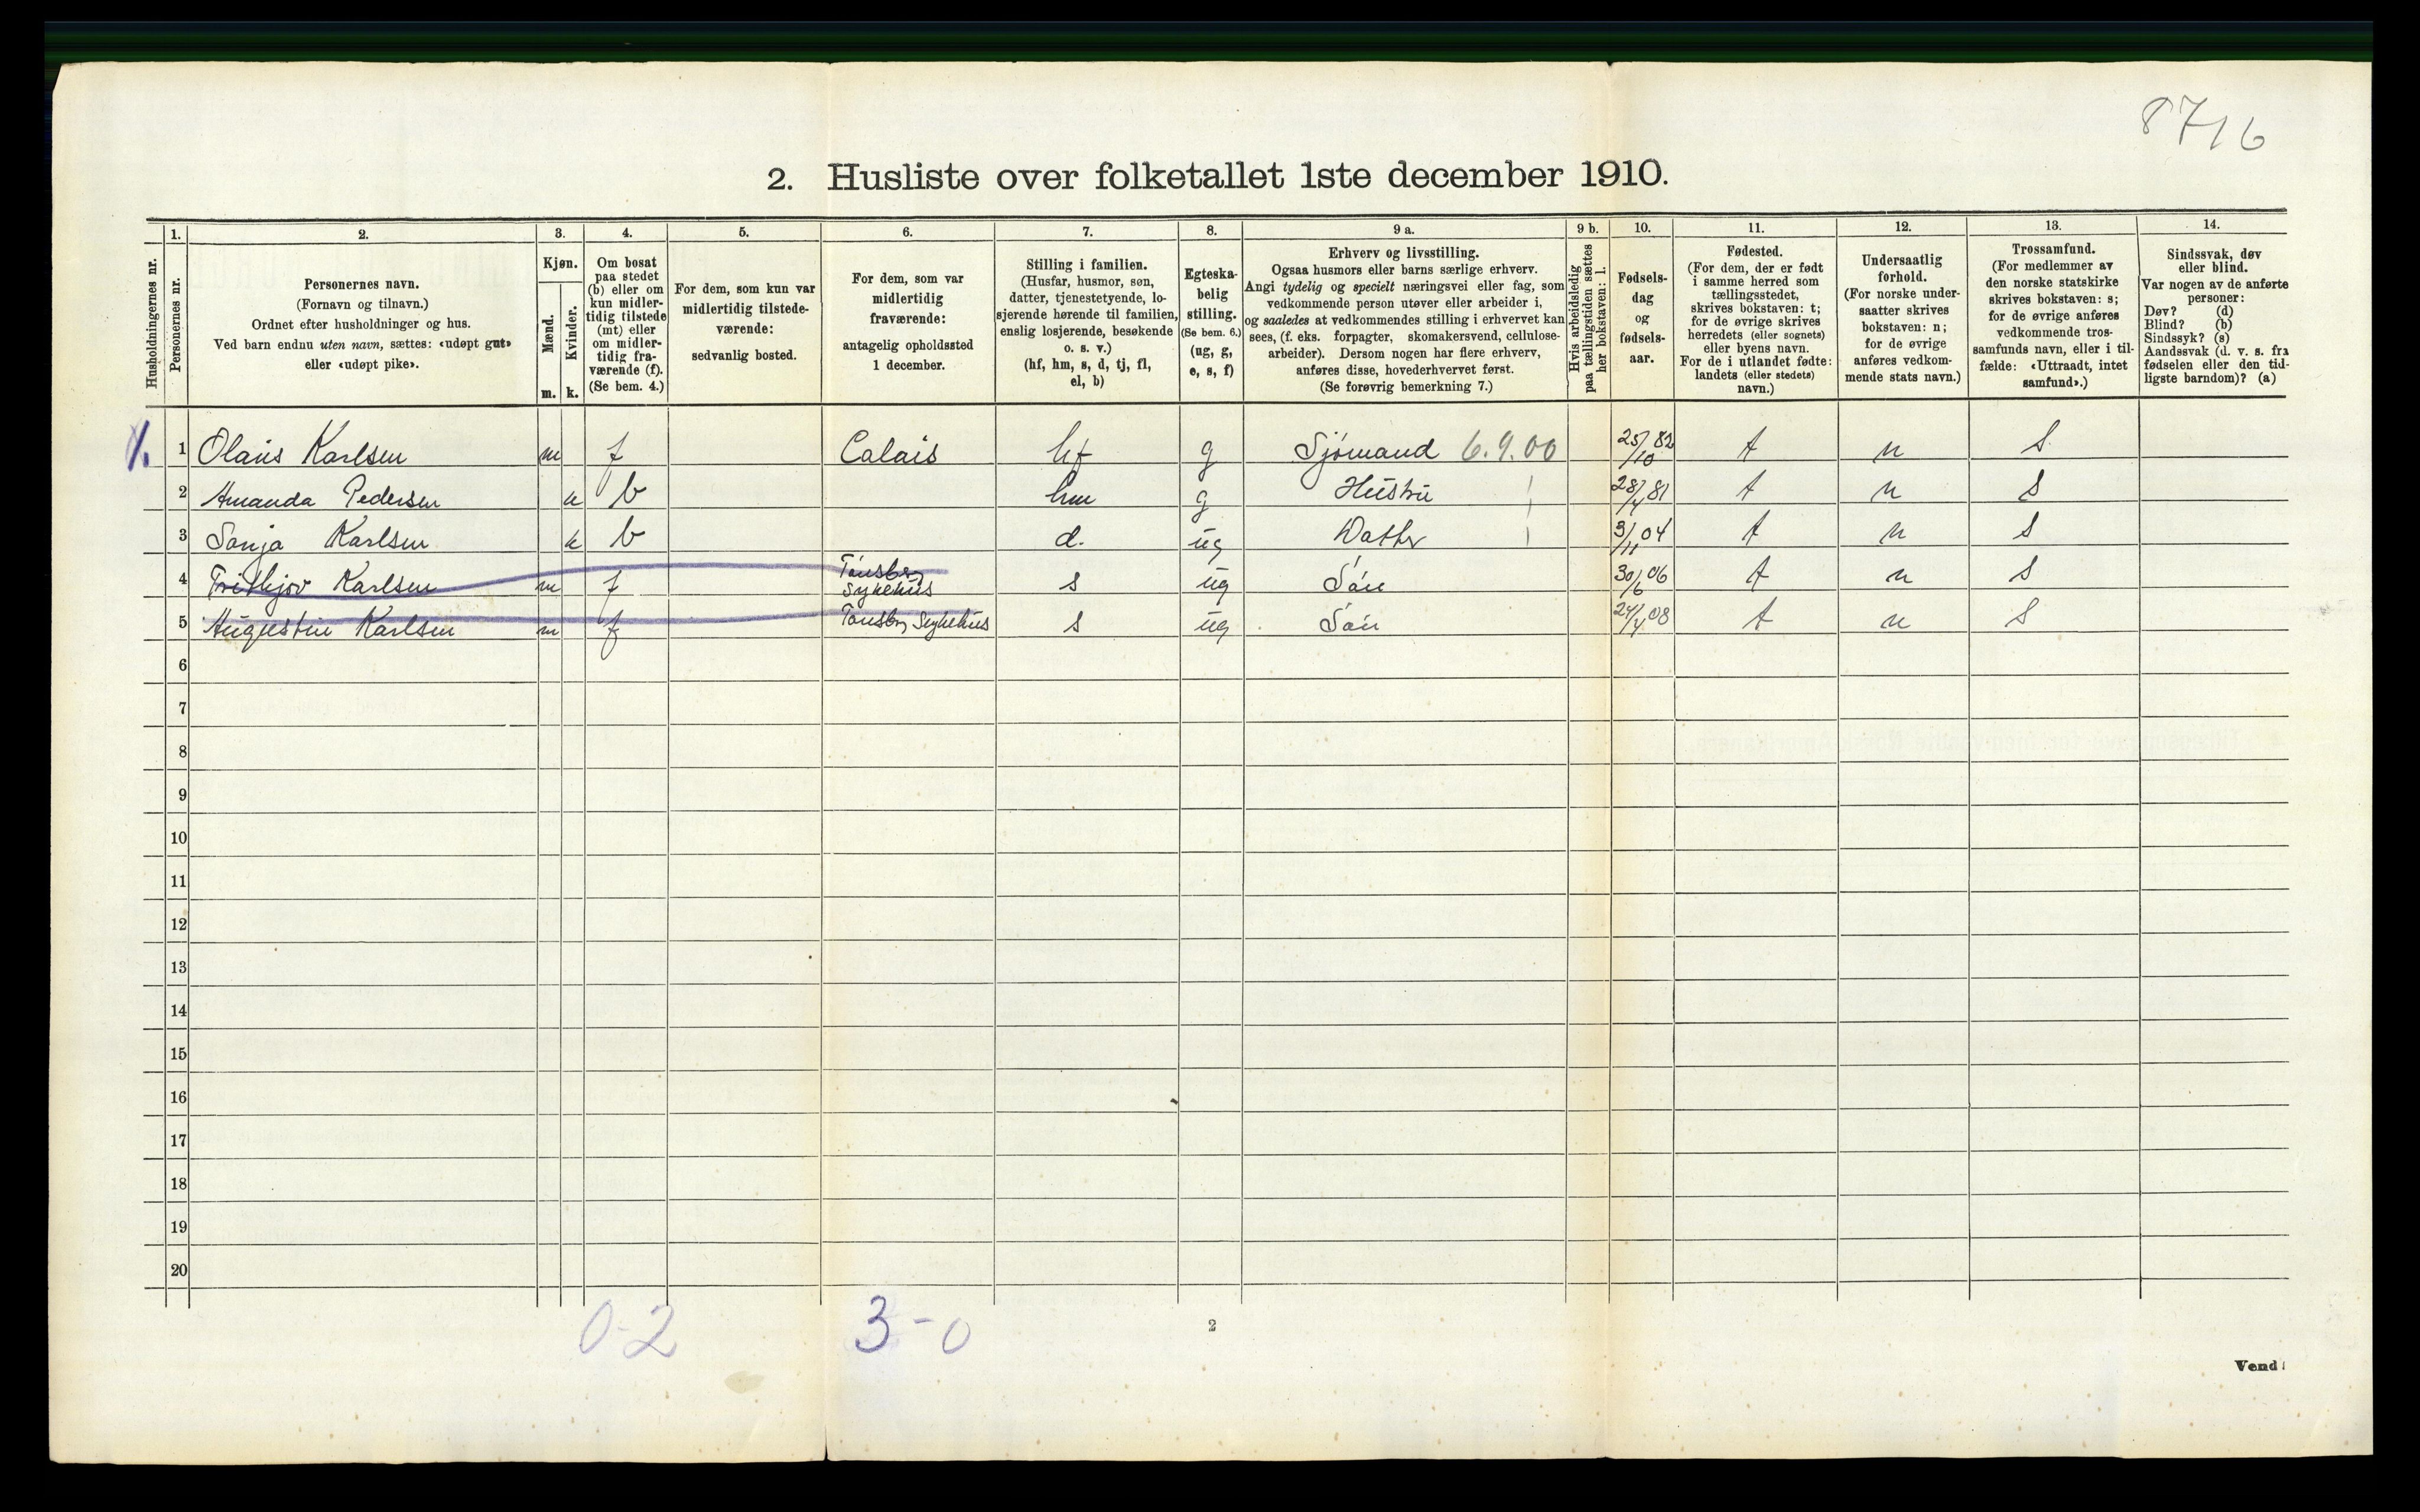 8716
2. Husliste over folketallet 1ste december 1910.
Husholdningernes nr.
1.
Personernes nr.
2.
Personernes navn.
(Fornavn og tilnavn.)
Ordnet efter husholdninger og hus.
Ved barn endnu uten navn, sættes: «udøpt gut»
eller «udøpt pike».
3.
Kjøn.
Mænd.
m.
Kvinder.
k.
4.
Om bosat
paa stedet
(b) eller om
kun midler-
tidig tilstede
(mt) eller
om midler-
tidig fra-
værende (f).
(Se bem. 4.)
5.
For dem, som kun var
midlertidig tilstede-
værende:
sedvanlig bosted.
6.
For dem, som var
midlertidig
fraværende:
antagelig opholdssted
1 december.
7.
Stilling i familien.
(Husfar, husmor, søn,
datter, tjenestetyende, lo-
sjerende hørende til familien,
enslig losjerende, besøkende
o. s. v.)
(hf, hm, s, d, tj, fl,
el, b)
8.
Egteska-
belig
stilling.
(Se bem. 6.)
(ug, g,
e, s, f)
9 a.
Erhverv og livsstilling.
Ogsaa husmors eller barns særlige erhverv.
Angi tydelig og specielt næringsvei eller fag, som
vedkommende person utøver eller arbeider i,
og saaledes at vedkommendes stilling i erhvervet kan
sees, (f. eks. forpagter, skomakersvend, cellulose-
arbeider). Dersom nogen har flere erhverv,
anføres disse, hovederhvervet først.
(Se forøvrig bemerkning 7.)
9 b.
Hvis arbeidsledig
paa tællingstiden sættes
her bokstaven: l.
10.
Fødsels-
dag
og
fødsels-
aar.
11.
Fødested.
(For dem, der er født
i samme herred som
tællingsstedet,
skrives bokstaven: t;
for de øvrige skrives
herredets (eller sognets)
eller byens navn.
For de i utlandet fødte:
landets (eller stedets)
navn.)
12.
Undersaatlig
forhold.
(For norske under-
saatter skrives
bokstaven: n;
for de øvrige
anføres vedkom-
mende stats navn.)
13.
Trossamfund.
(For medlemmer av
den norske statskirke
skrives bokstaven: s;
for de øvrige anføres
vedkommende tros-
samfunds navn, eller i til-
fælde: «Uttraadt, intet
samfund».)
14.
Sindssvak, døv
eller blind.
Var nogen av de anførte
personer:
Døv? (d)
Blind? (b)
Sindssyk? (s)
Aandssvak (d. v. s. fra
fødselen eller den tid-
ligste barndom)? (a)
1 Olaus Karlsen m f Calais hf g Sjömand 6.9.00 25/10 82 t n S.
2 Amanda Pedersen k b hm g Hustru 28/4 81 t n S
3 Sonja Karlsen k b d. ug Datter 3/11 04 t n S
4 Fridthjov Karlsen m f Tønsberg Sykehus s ug Søn 30/6 06 t n S
5 Augustin Karlsen m f Tønsbrg Sykehus s ug Søn 24/4 08 t n S
6
7
8
9
10
11
12
13
14
15
16
17
18
19
20
0-2 3-0
2
Vend!